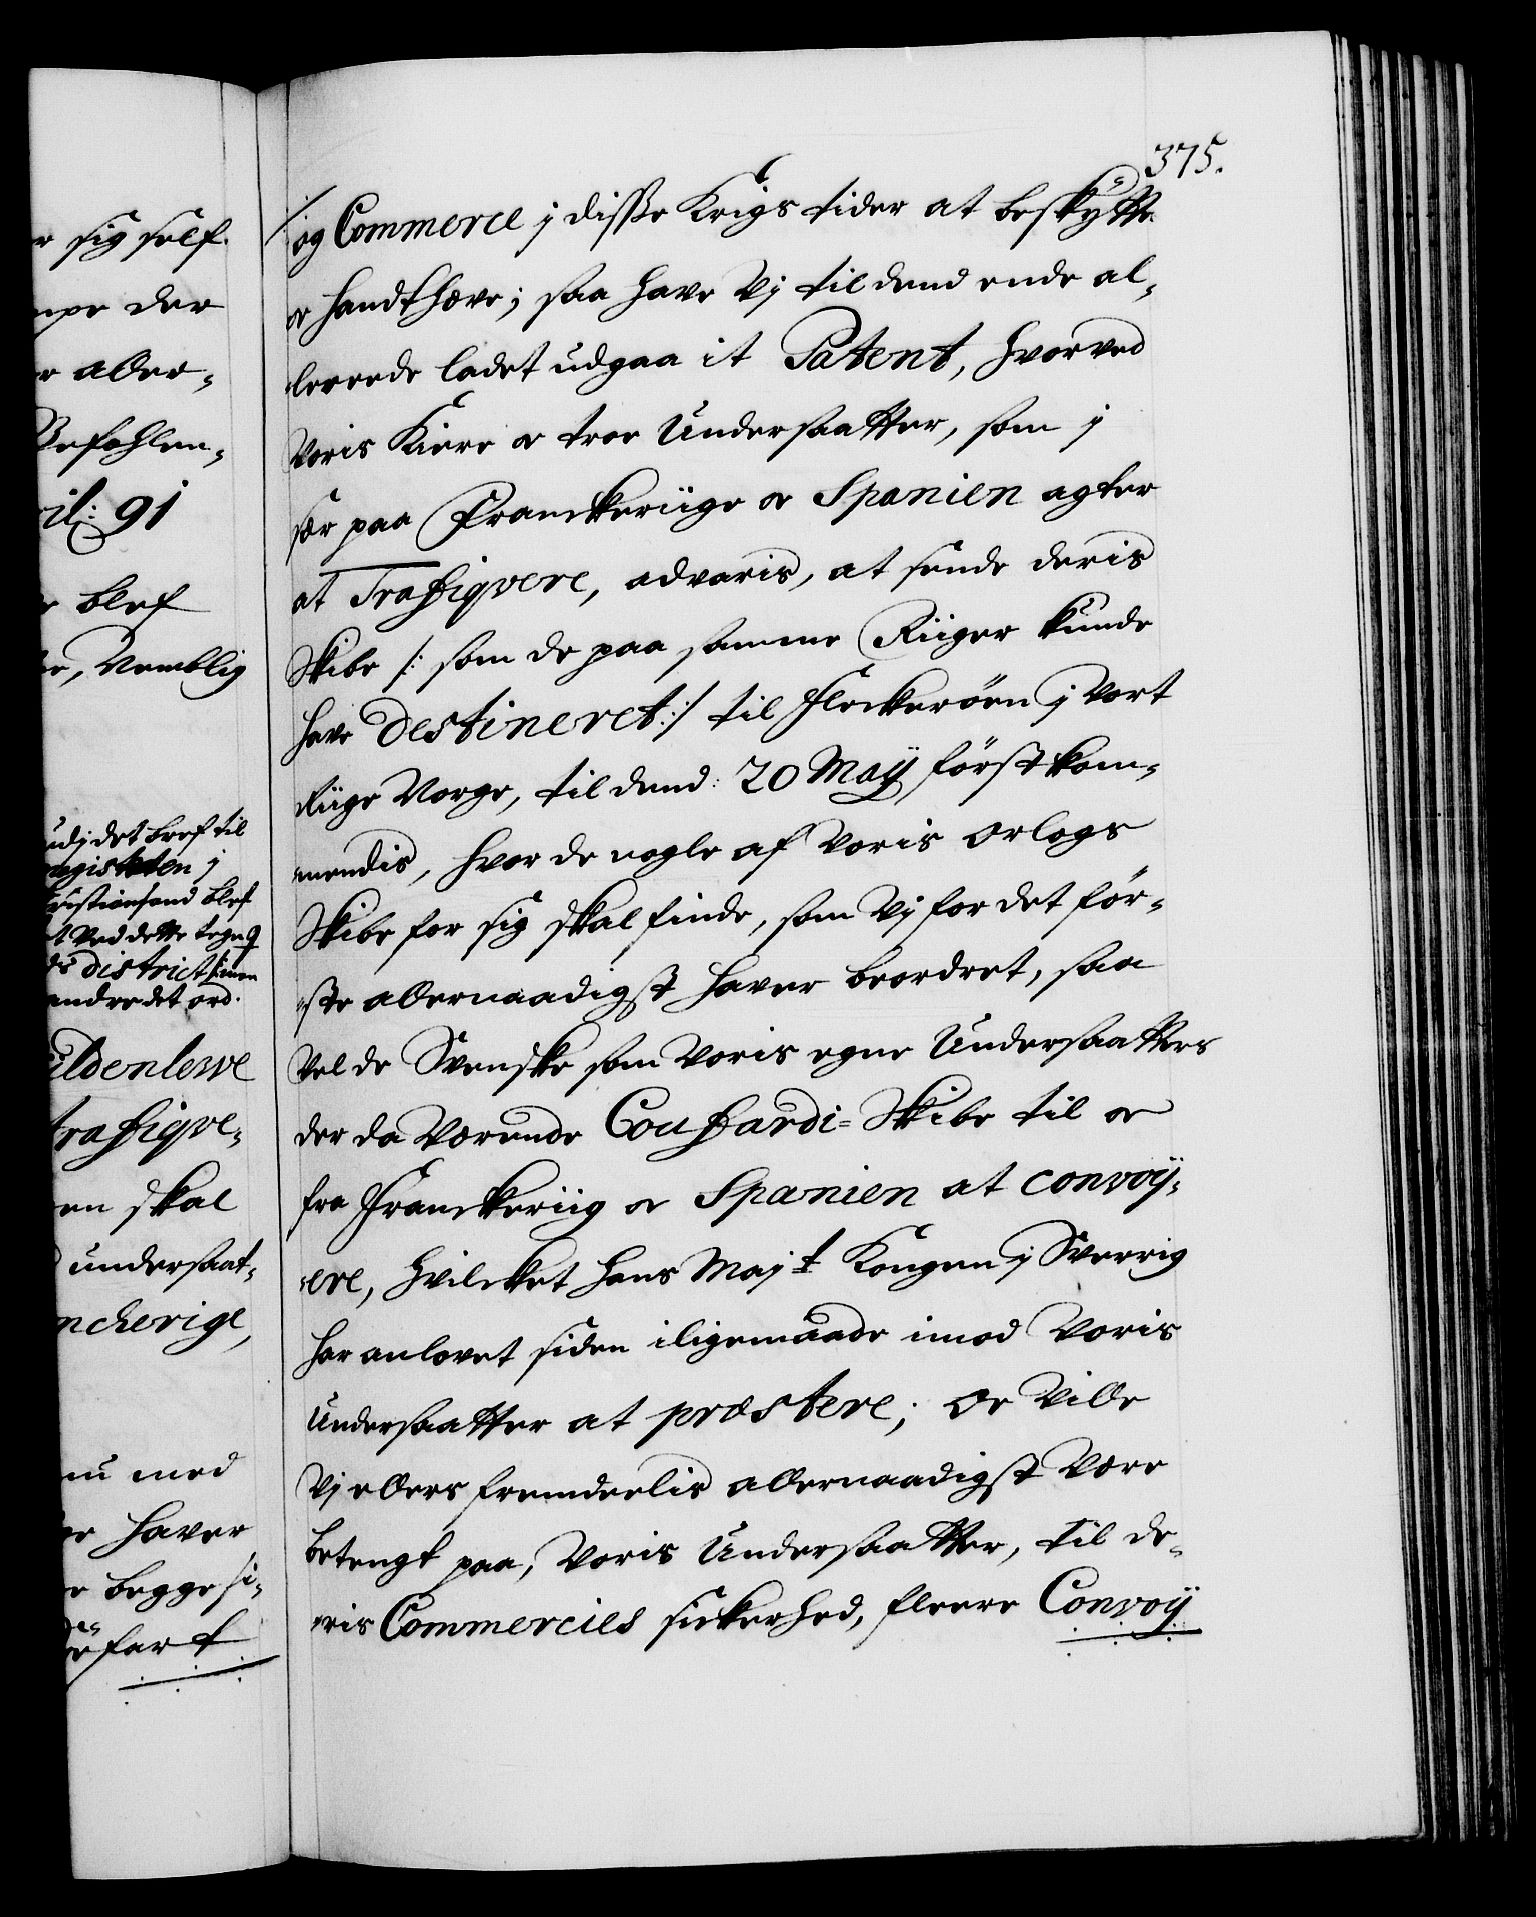 375.
og Commerce j disse Krigs tider at beskytte
og handthæve; saa have Vj til dend ende al-
lereede ladet udgaa it Patent, hvorved
Voris Kiere og troe Undersaatter, som j
sær paa Franckeriige og Spanien agter
at Trafiqvere, advaris, at sende deris
Skibe /: som de paa samme Riiger kunde
have destineret :/ til Fleckerøen j Vort
Riige Norge, til dend: 20 Maÿ førstkom-
mendis, hvor de nogle af Voris Orlogs
Skibe for sig skal finde, som Vj for det før-
ste allernaadigst haver beordret, saa
Vel de Svenske som Voris egne Undersaatters
der da Værende Couffardi= Skibe til og
fra Franckeriig og Spanien at convoÿ-
ere, hvilcket Hans Majt Kongen j Sverrig
har anlovet siden iligemaade imod Voris
Undersaatter at præstere; Og Ville
Vj ellers fremdeelis allernaadigst Være
betengt paa, Voris Undersaatter, til de-
ris Commercies sickerhed, fleere Convoÿ
r sig self.
mpe der
r aller-
Befahlen-
ril: 91
blef
, Nemblig
udj det bref til
Magistraten j
Christiansand blef
ved dette tegn
district
andre det ord.
üldenlewe
trafiqve-
en skal
undersaat-
ncherige,
nu med
haver
begge si-
fart